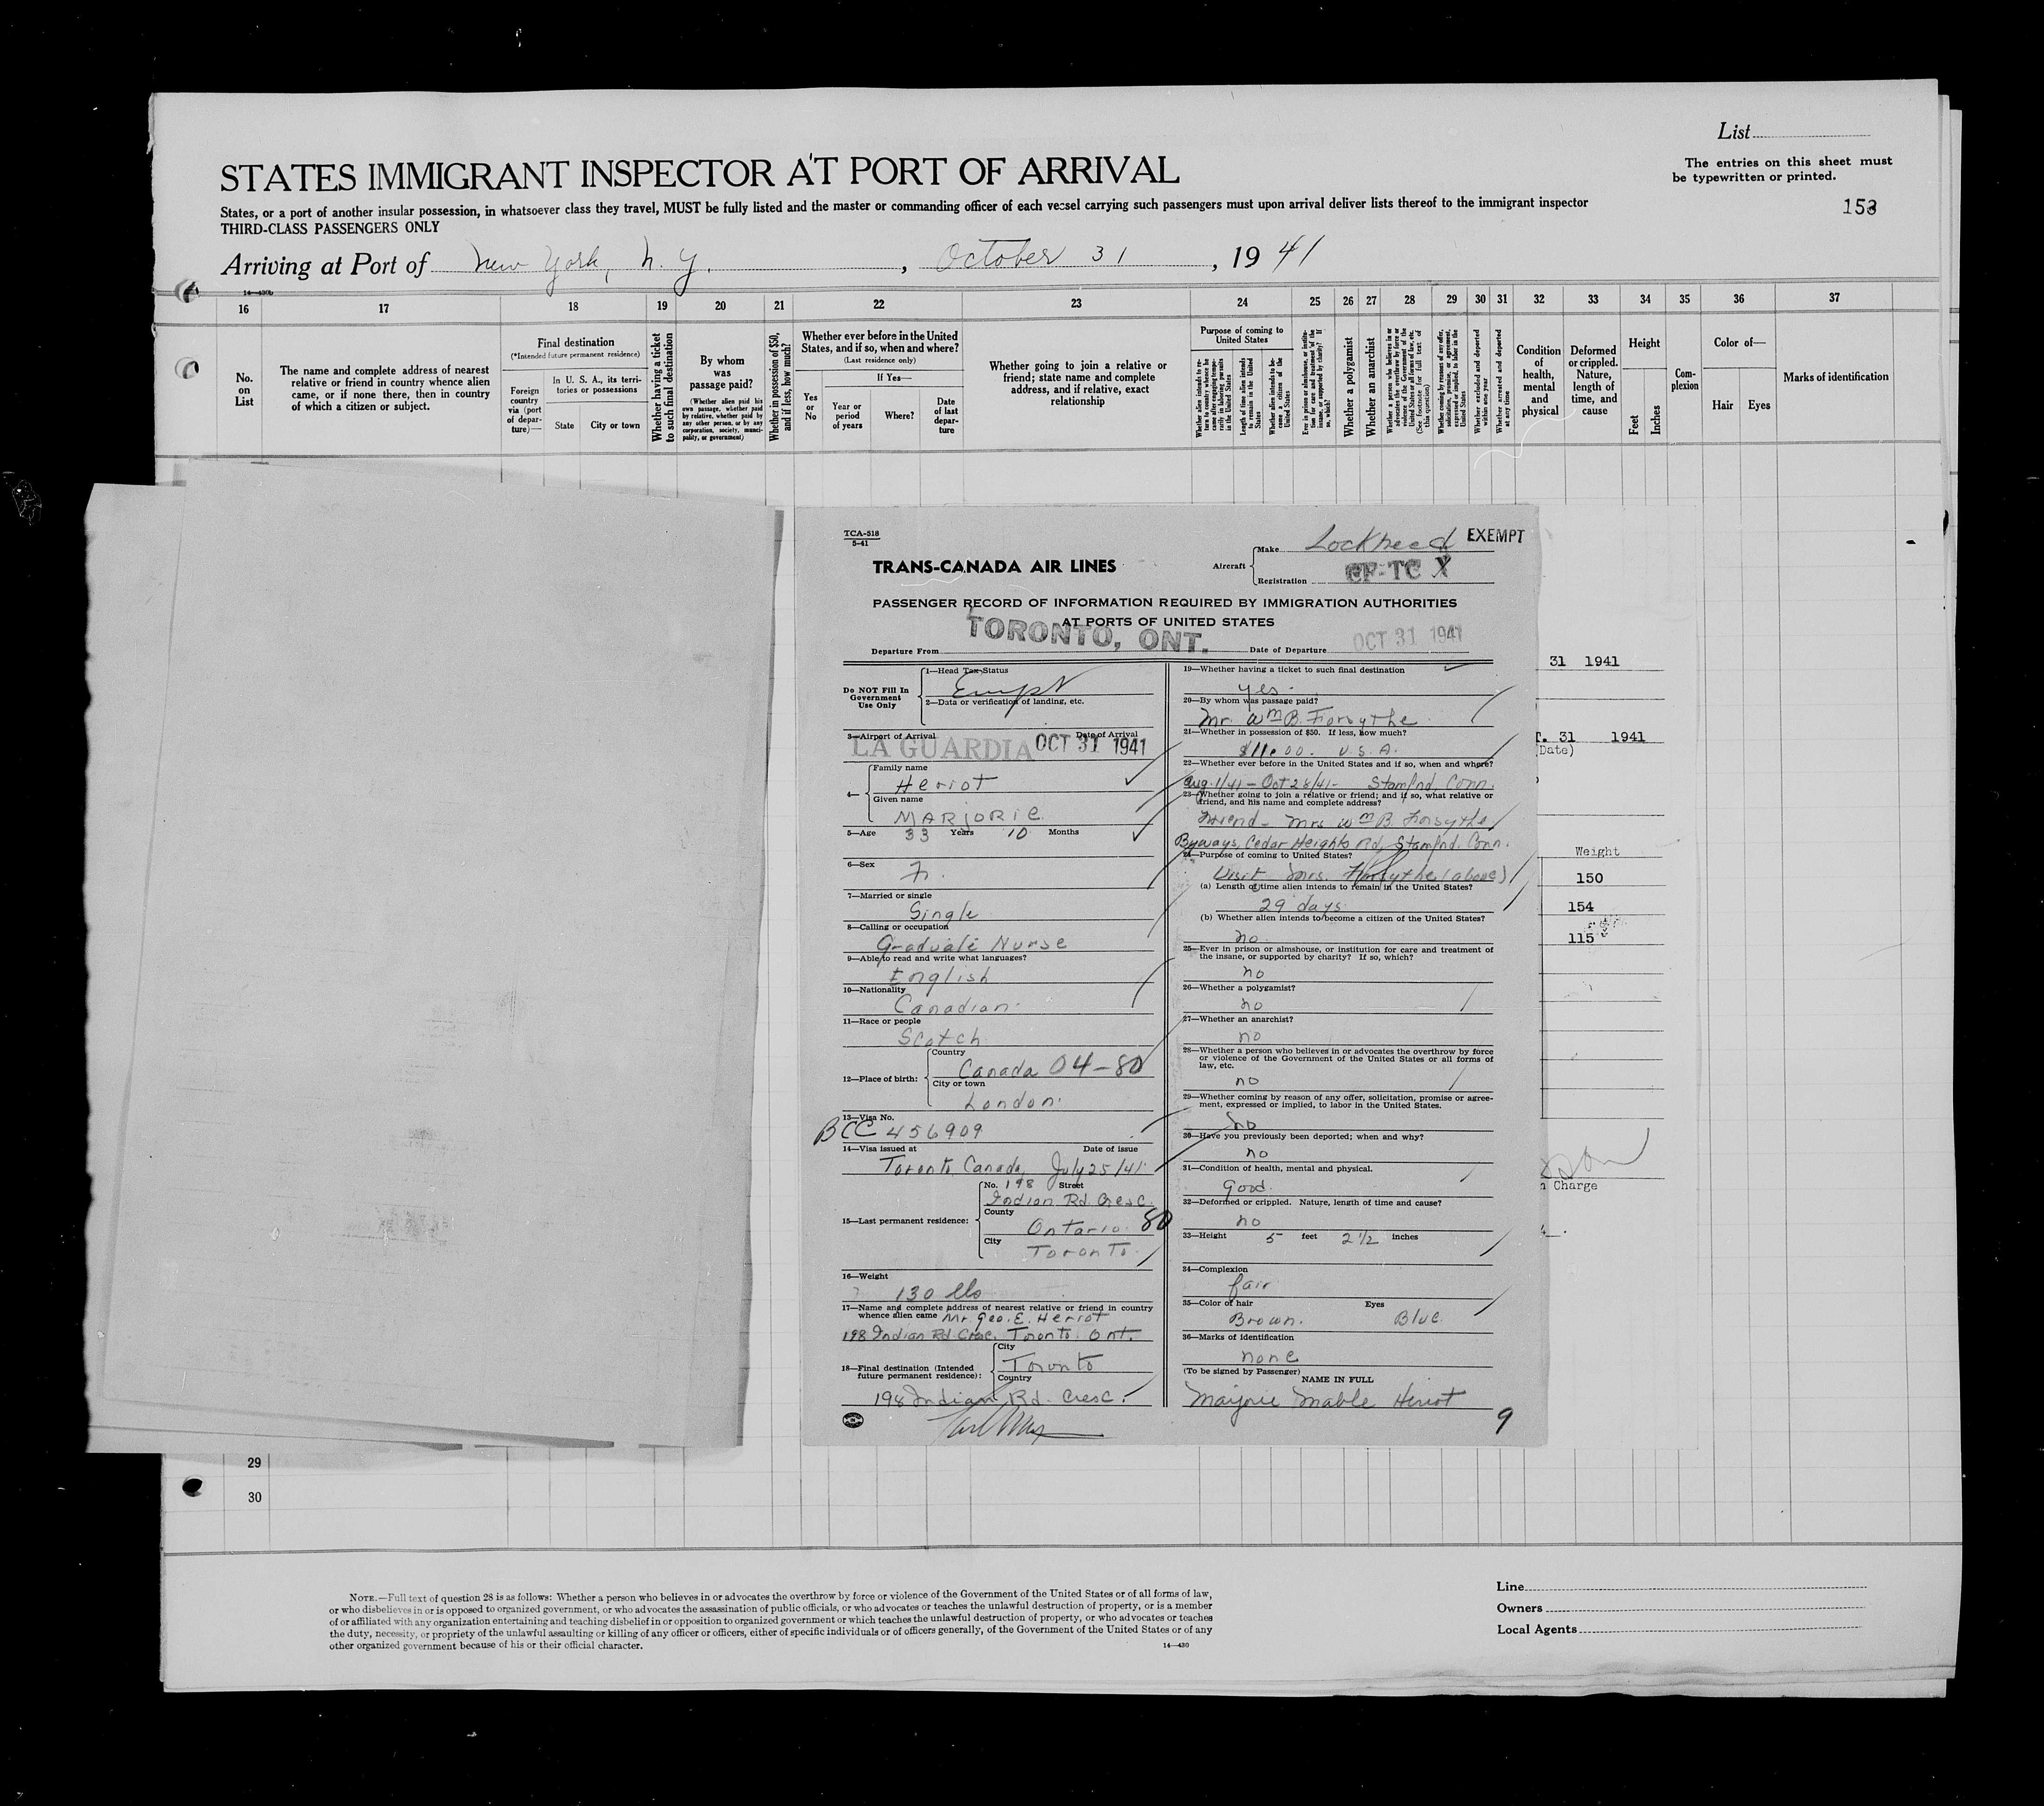 List
STATES IMMIGRANT INSPECTOR AT PORT OF ARRIVAL
The entries on this sheet must
be typewritten or printed.
153
States, or a port of another insular possession, in whatsoever class they travel, MUST be fully listed and the master or commanding officer of each vessel carrying such passengers must upon arrival deliver lists thereof to the immigrant inspector
THIRD-CLASS PASSENGERS ONLY
Arriving at Port of New York, N. Y. , October 31 , 19 41
14—430b
16 17 18 19 20 21 22 23 24 25 26 27 28 29 30 31 32 33 34 35 36 37
No. on List
The name and complete address of nearest relative or friend in country whence alien came, or if none there, then in country of which a citizen or subject.
Final destination
(*Intended future permanent residence)
Foreign country via (port of departure)—
In U. S. A., its territories or possessions
State City or town
Whether having a ticket to such final destination
By whom was passage paid?
(Whether alien paid his own passage, whether paid by relative, whether paid by any other person, or by any corporation, society, municipality, or government)
Whether in possession of $50, and if less, how much?
Whether ever before in the United States, and if so, when and where?
(Last residence only)
Yes or No
If Yes—
Year or period of years
Where?
Date of last departure
Whether going to join a relative or friend; state name and complete address, and if relative, exact relationship
Purpose of coming to United States
Whether alien intends to return to country whence he came after engaging temporarily in laboring pursuits in the United States
Length of time alien intends to remain in the United States
Whether alien intends to become a citizen of the United States
Ever in prison or almshouse, or institution for care and treatment of the insane, or supported by charity? If so, which?
Whether a polygamist
Whether an anarchist
Whether a person who believes in or advocates the overthrow by force or violence of the Government of the United States or all forms of law, etc. (See footnote for full text of this question)
Whether coming by reason of any offer, solicitation, promise, or agreement, expressed or implied, to labor in the United States
Whether excluded and deported within one year
Whether arrested and deported at any time
Condition of health, mental and physical
Deformed or crippled. Nature, length of time, and cause
Height
Feet Inches
Complexion
Color of—
Hair Eyes
Marks of identification
TCA-518
5-41
TRANS-CANADA AIR LINES
Aircraft
Make Lockheed EXEMPT
Registration CF-TC X
PASSENGER RECORD OF INFORMATION REQUIRED BY IMMIGRATION AUTHORITIES
AT PORTS OF UNITED STATES
Departure From TORONTO, ONT. Date of Departure OCT 31 1941
Do NOT Fill In
Government
Use Only
1—Head Tax Status
Exmpt
2—Data or verification of landing, etc.
3—Airport of Arrival Date of Arrival
LA GUARDIA OCT 31 1941
4—
Family name
Heriot
Given name
MARJORIE
5—Age 33 Years 10 Months
6—Sex
F.
7—Married or single
Single
8—Calling or occupation
Graduate Nurse
9—Able to read and write what languages?
English
10—Nationality
Canadian
11—Race or people
Scotch
12—Place of birth:
Country
Canada 04-80
City or town
London
13—Visa No.
BCC 456909
14—Visa issued at Date of issue
Toronto, Canada, July 25/41
15—Last permanent residence:
No. 198 Street
Indian Rd. Cresc.
County
Ontario 80
City
Toronto
16—Weight
130 lbs
17—Name and complete address of nearest relative or friend in country
whence alien came Mr. Geo. E. Heriot
198 Indian Rd Cresc. Toronto Ont.
18—Final destination (Intended
future permanent residence):
City
Toronto
Country
198 Indian Rd. Cresc.
19—Whether having a ticket to such final destination
yes
20—By whom was passage paid?
Mr. Wm B. Forsythe
21—Whether in possession of $50. If less, how much?
$11.00. U.S.A.
22—Whether ever before in the United States and if so, when and where?
Aug. 1/41 - Oct 28/41 - Stamfrd, Conn.
23—Whether going to join a relative or friend; and if so, what relative or
friend, and his name and complete address?
Friend - Mrs Wm B. Forsythe
Byways, Cedar Heights Rd, Stamfrd. Conn.
24—Purpose of coming to United States?
Visit Mrs. Forsythe (above)
(a) Length of time alien intends to remain in the United States?
29 days
(b) Whether alien intends to become a citizen of the United States?
no
25—Ever in prison or almshouse, or institution for care and treatment of
the insane, or supported by charity? If so, which?
no
26—Whether a polygamist?
no
27—Whether an anarchist?
no
28—Whether a person who believes in or advocates the overthrow by force
or violence of the Government of the United States or all forms of
law, etc.
no
29—Whether coming by reason of any offer, solicitation, promise or agree-
ment, expressed or implied, to labor in the United States.
no
30—Have you previously been deported; when and why?
no
31—Condition of health, mental and physical.
Good
32—Deformed or crippled. Nature, length of time and cause?
no
33—Height 5 feet 2 1/2 inches
34—Complexion
fair
35—Color of hair Eyes
Brown. Blue
36—Marks of identification
none
(To be signed by Passenger)
NAME IN FULL
Marjorie Mable Heriot
9
31 1941
T. 31 1941
(Date)
Weight
150
154
115
n Charge
29
30
NOTE.—Full text of question 28 is as follows: Whether a person who believes in or advocates the overthrow by force or violence of the Government of the United States or of all forms of law,
or who disbelieves in or is opposed to organized government, or who advocates the assassination of public officials, or who advocates or teaches the unlawful destruction of property, or is a member
of or affiliated with any organization entertaining and teaching disbelief in or opposition to organized government or which teaches the unlawful destruction of property, or who advocates or teaches
the duty, necessity, or propriety of the unlawful assaulting or killing of any officer or officers, either of specific individuals or of officers generally, of the Government of the United States or of any
other organized government because of his or their official character.
14—430
Line
Owners
Local Agents